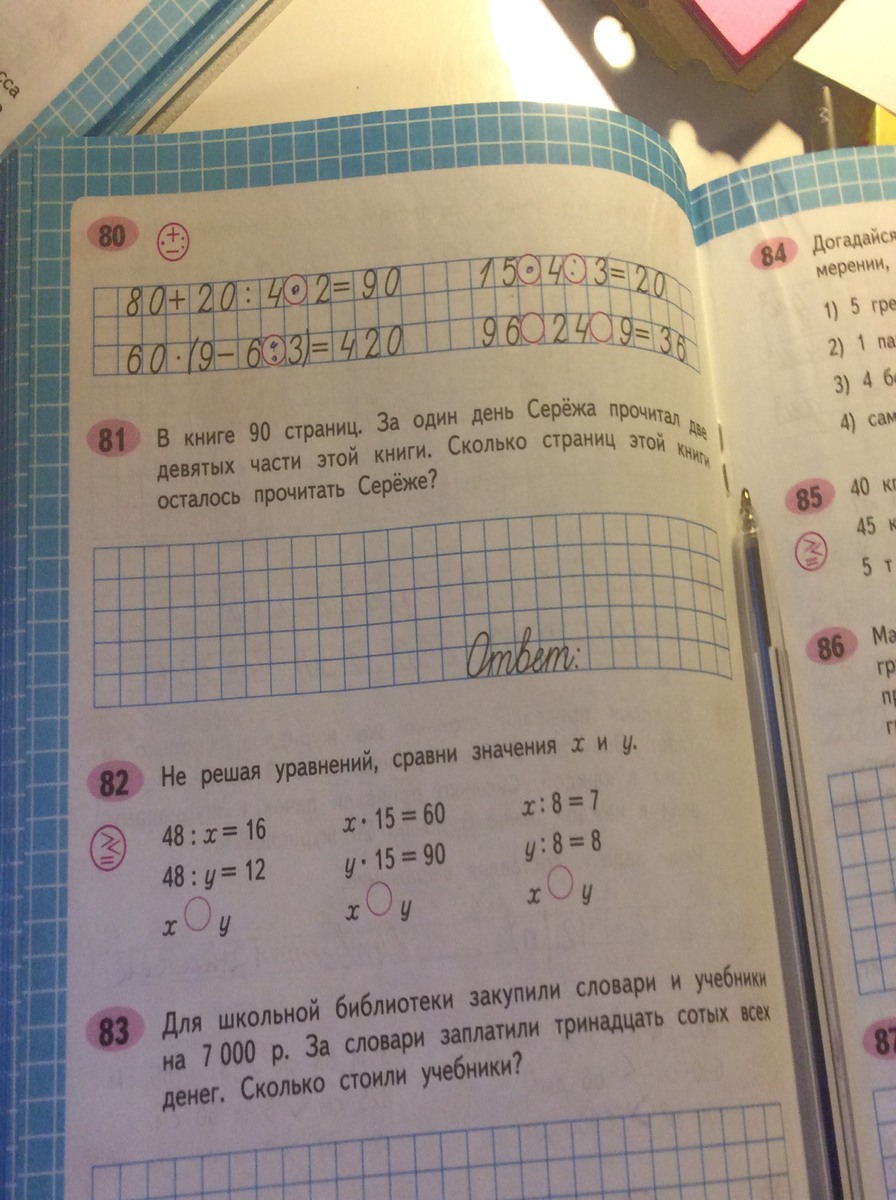 сса
80
80 + 20 : 4 · 2 = 90
15 · 4 : 3 = 20
60 · (9 – 6 : 3) = 420
96 ◯ 24 ◯ 9 = 36
81 В книге 90 страниц. За один день Серёжа прочитал две
девятых части этой книги. Сколько страниц этой книги
осталось прочитать Серёже?
Ответ:
82 Не решая уравнений, сравни значения x и y.
48 : x = 16
48 : y = 12
x ◯ y
x · 15 = 60
y · 15 = 90
x ◯ y
x : 8 = 7
y : 8 = 8
x ◯ y
83 Для школьной библиотеки закупили словари и учебники
на 7 000 р. За словари заплатили тринадцать сотых всех
денег. Сколько стоили учебники?
84 Догадайся
мерении,
1) 5 гре
2) 1 па
3) 4 бо
4) сам
85 40 кг
45 к
5 т
86 Ма
гр
пр
87